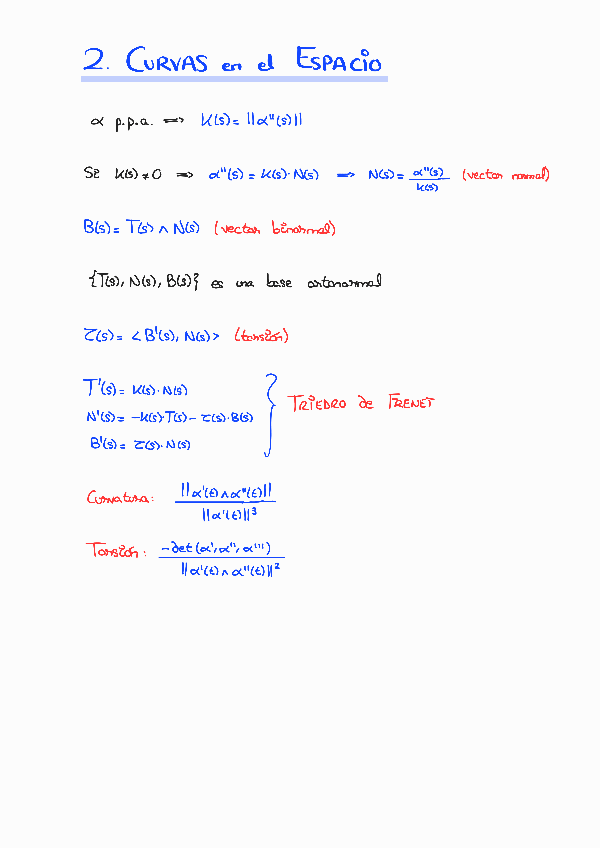 2. CURVAS en el ESPACIO
α p.p.a. ⟹ K(s) = ||α''(s)||
Si K(s) ≠ 0 ⟹ α''(s) = K(s)·N(s) ⟹ N(s) = α''(s)/K(s) (vector normal)
B(s) = T(s) ∧ N(s) (vector binormal)
{T(s), N(s), B(s)} es una base ortonormal
τ(s) = <B'(s), N(s)> (torsión)
T'(s) = K(s)·N(s)
N'(s) = -K(s)·T(s) - τ(s)·B(s)
B'(s) = τ(s)·N(s)
TRIEDRO de FRENET
Curvatura: ||α'(t) ∧ α''(t)|| / ||α'(t)||³
Torsión: -det(α', α'', α''') / ||α'(t) ∧ α''(t)||²